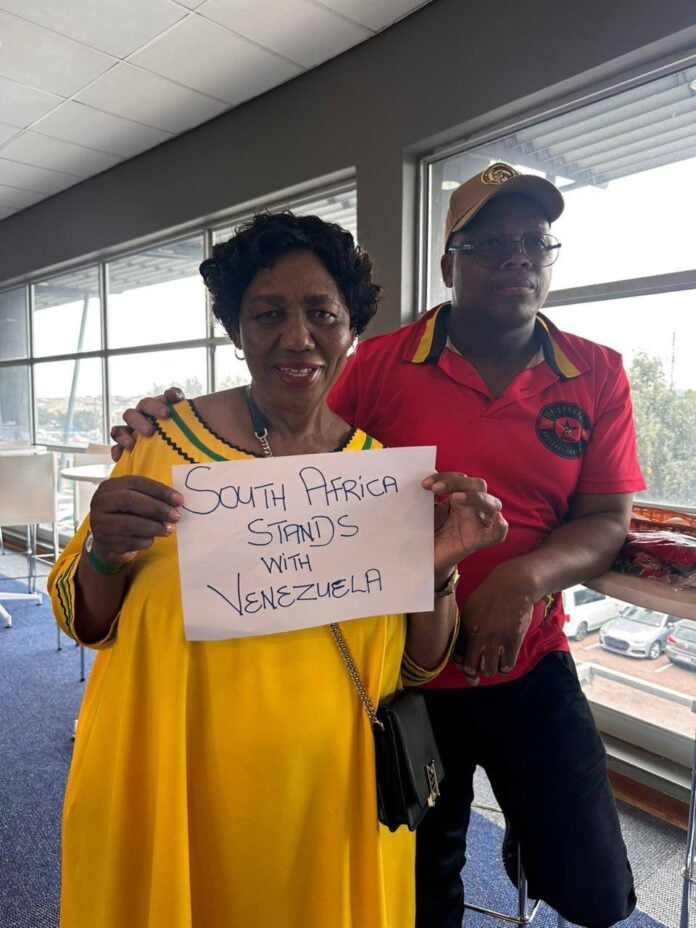 South Africa
Stands
with
Venezuela